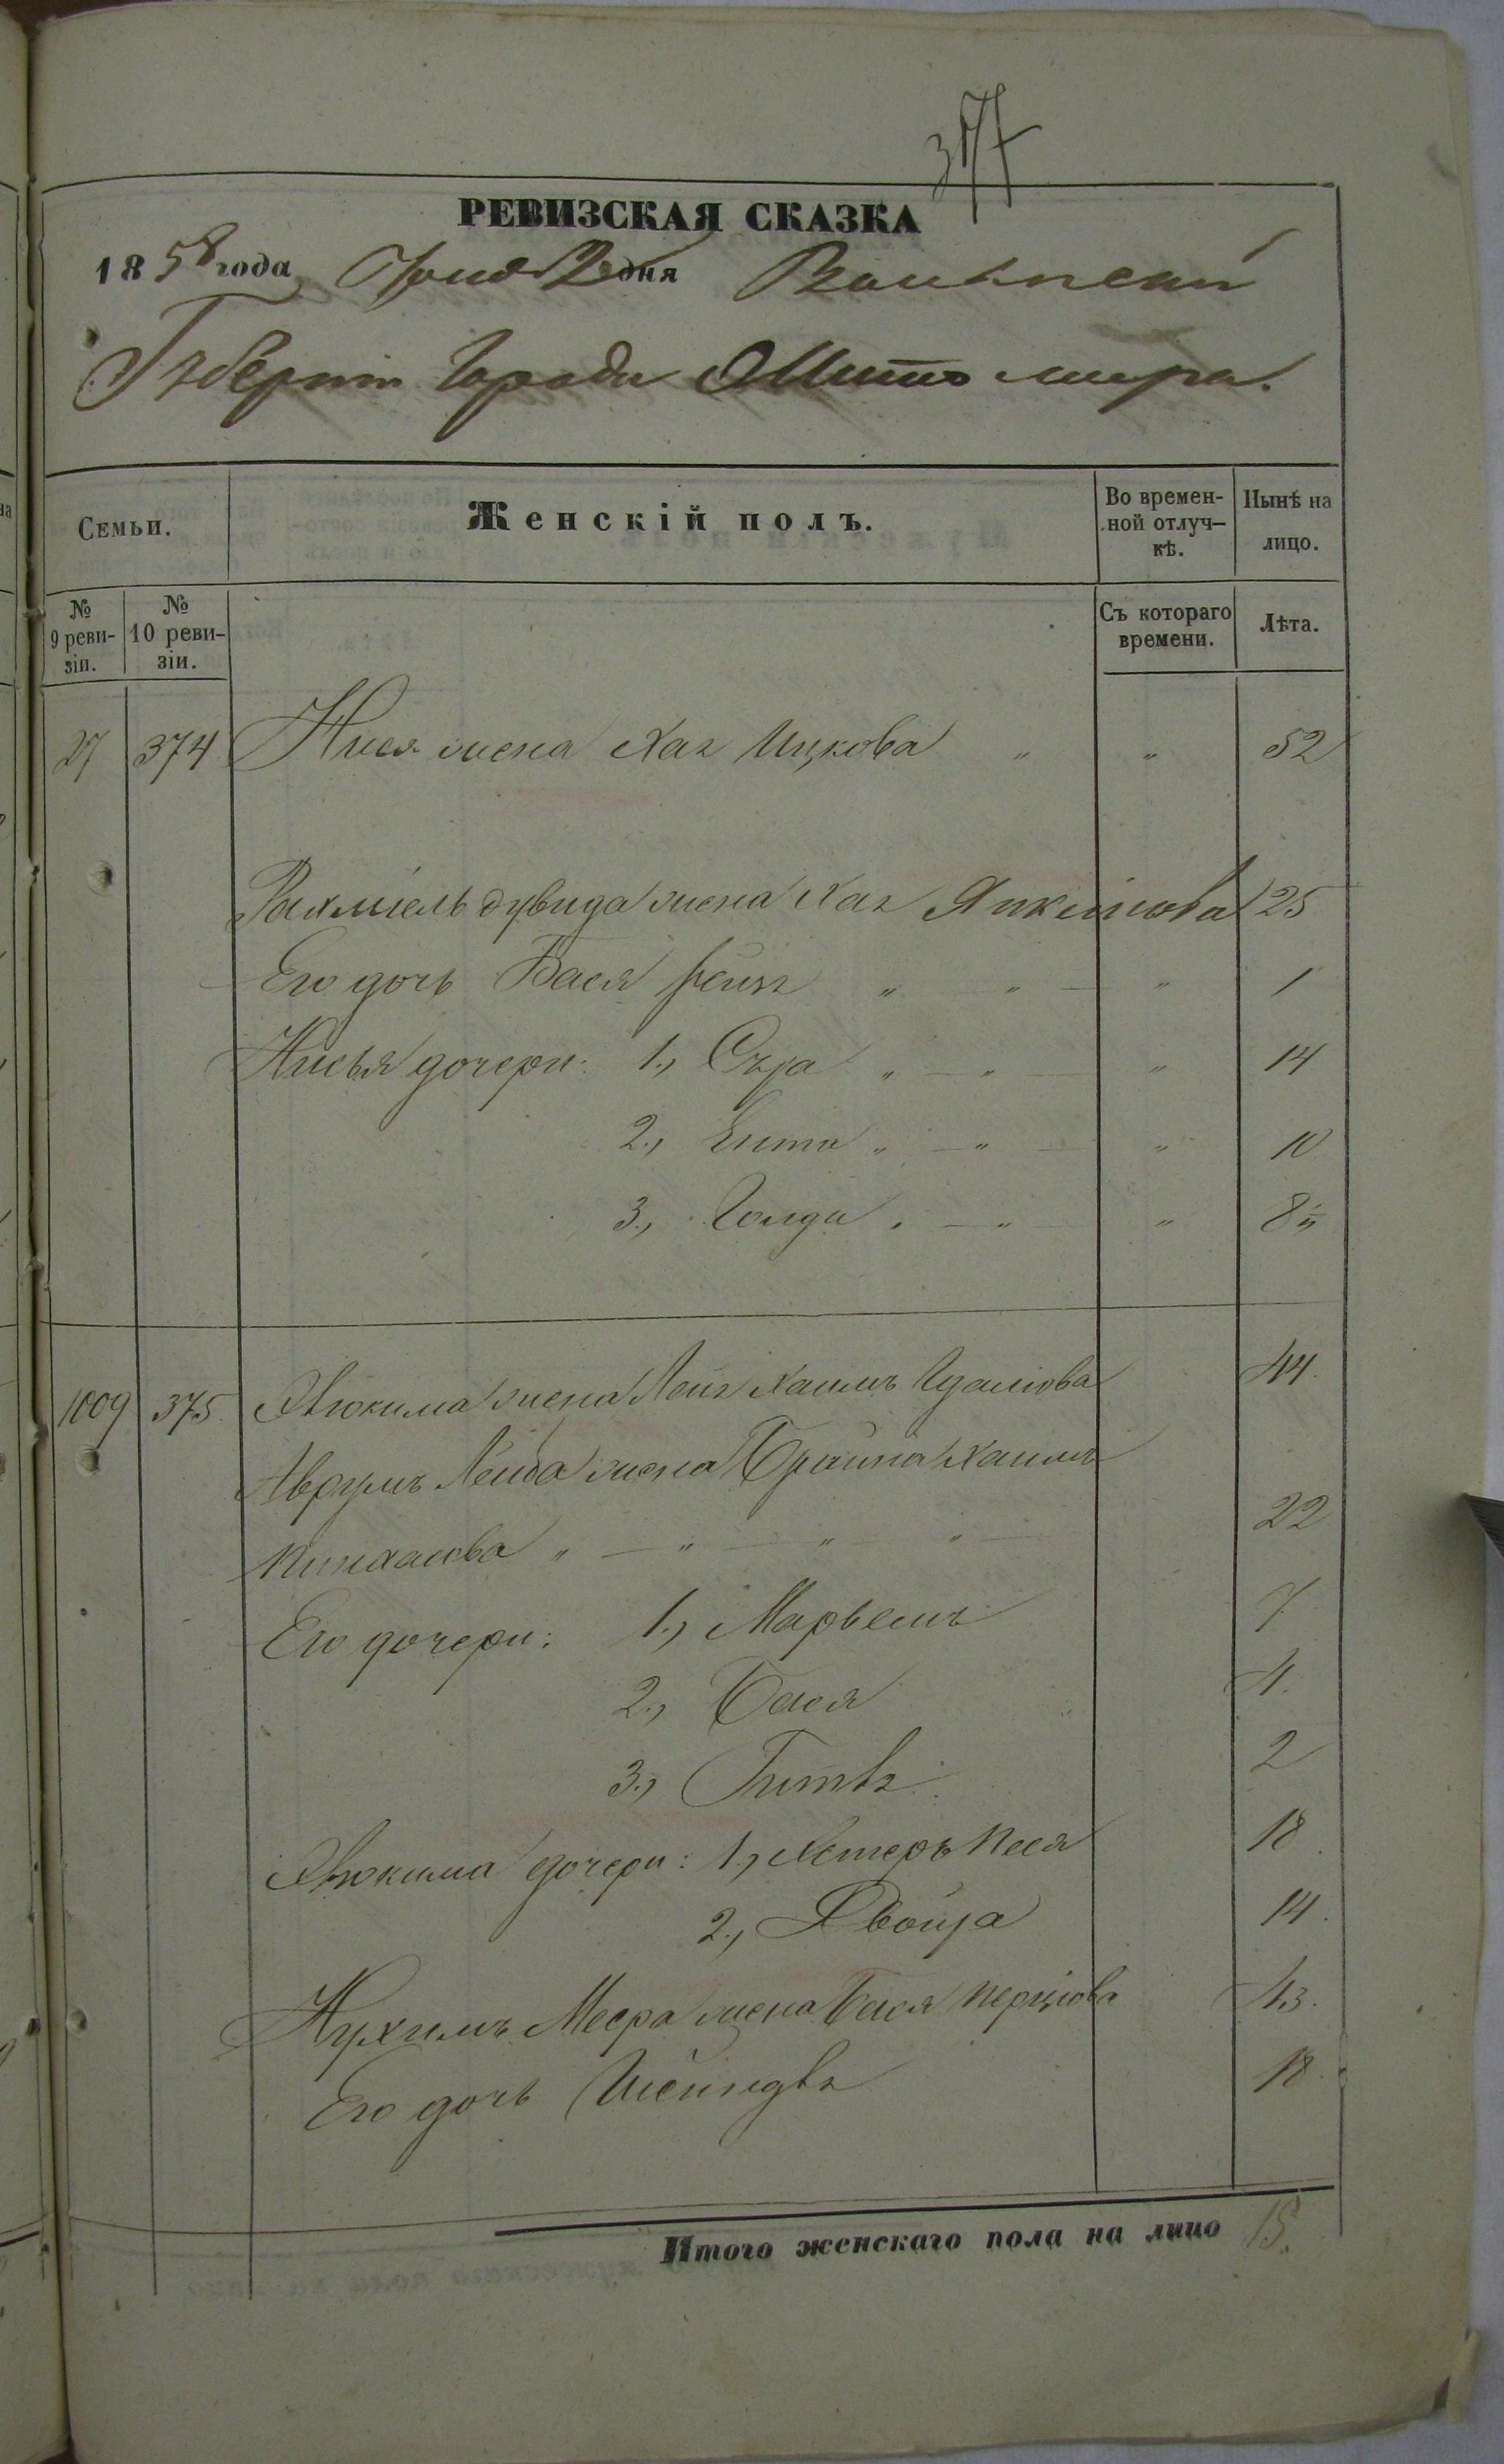 377
РЕВИЗСКАЯ СКАЗКА
1858 года Юня 2 дня Волынской
Губерніи Города Житомира.
Семьи.
Женскій полъ.
Во времен-
ной отлуч-
кѣ.
Нынѣ на
лицо.
№
9 реви-
зіи.
№
10 реви-
зіи.
Съ котораго
времени.
Лѣта.
27 374 Нися жена Хая Ицкова " " 52
Рахміель Дувида жена Хая Янкелiова 25
Его дочь Бася Рейзя " — " — " 1
Нисья дочери: 1., Сура " — " — " 14
2., Ента " — " — " 10
3., Голда " — " " 8
1009 375. жена Лея Хаимъ 44.
Аврумъ Лейба жена Брайна Хаимъ
Пинхасова " — " — " — " — 22
Его дочери: 1., Марьемъ 7.
2., Бася 4.
3., Гитля 2
дочери: 1., Хстеръ Песя 18.
2., Двойра 14.
Нухимъ Меера жена Бася Перцiова 43.
Его дочь Шейндля 18.
Итого женскаго пола на лицо 15.